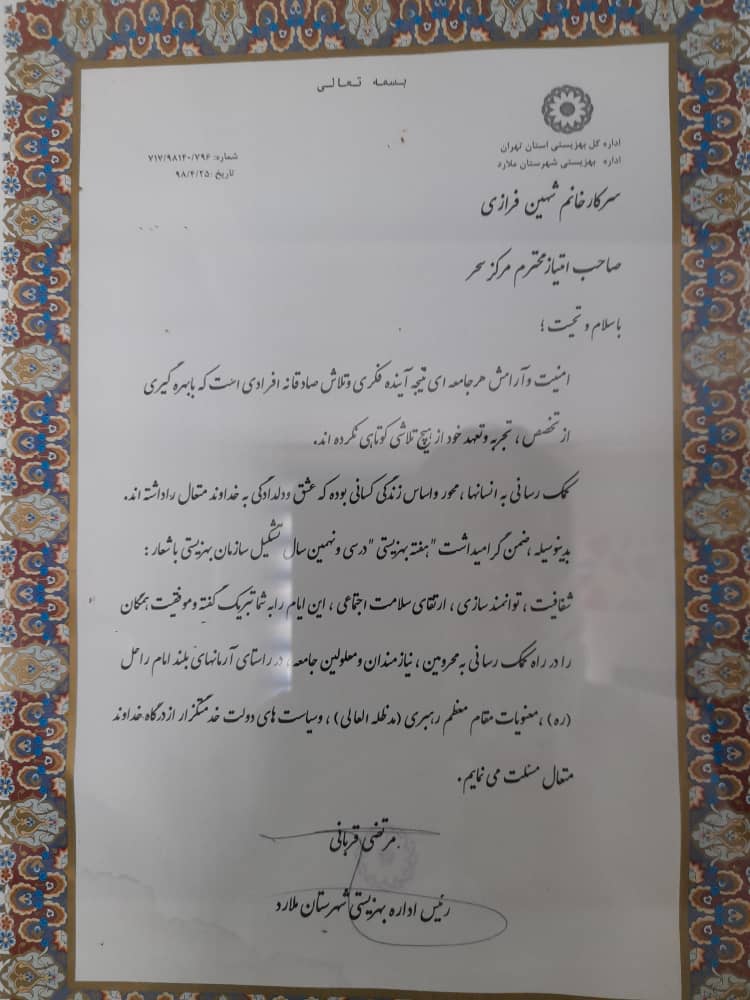 بسمه تعالی
اداره کل بهزیستی استان تهران
اداره بهزیستی شهرستان ملارد
شماره: ۷۱۷/۹۸۱۴۰/۷۹۶
تاریخ: ۹۸/۴/۲۵
سرکار خانم شهین فرازی
صاحب امتیاز محترم مرکز سحر
با سلام و تحیت ؛
امنیت و آرامش هر جامعه ای نتیجه آینده فکری و تلاش صادقانه افرادی است که با بهره گیری
از تخصص ، تجربه و تعهد خود از هیچ تلاشی کوتاهی نکرده اند.
کمک رسانی به انسانها ، محور و اساس زندگی کسانی بوده که عشق و دلدادگی به خداوند متعال را داشته اند.
بدینوسیله ، ضمن گرامیداشت "هفته بهزیستی" در سی و نهمین سال تشکیل سازمان بهزیستی با شعار :
شفافیت ، توانمند سازی ، ارتقای سلامت اجتماعی ، این ایام را به شما تبریک گفته و موفقیت همگان
را در راه کمک رسانی به محرومین ، نیازمندان و معلولین جامعه ، در راستای آرمانهای بلند امام راحل
(ره) ، معنویات مقام معظم رهبری (مدظله العالی) ، و سیاست های دولت خدمتگزار از درگاه خداوند
متعال مسئلت می نمایم.
مرتضی قربانی
رئیس اداره بهزیستی شهرستان ملارد